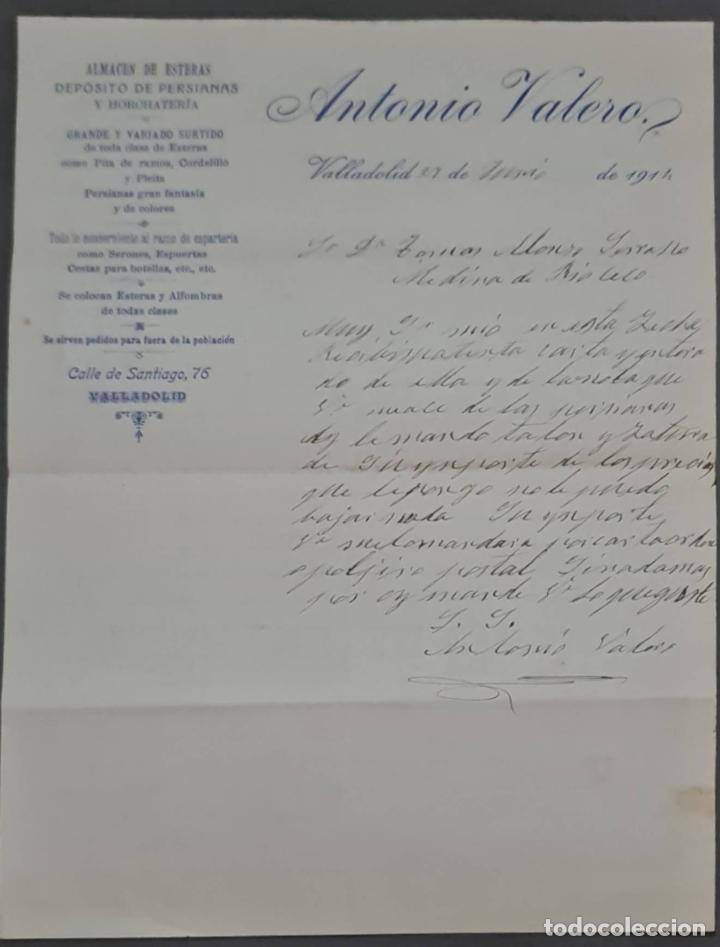 ALMACEN DE ESTERAS
DEPÓSITO DE PERSIANAS
Y HORCHATERÍA
GRANDE Y VARIADO SURTIDO
de toda clase de Esteras
como Pita de ramos, Cordelillo
y Pleita
Persianas gran fantasía
y de colores
Todo lo concerniente al ramo de espartería
como Serones, Espuertas
Cestas para botellas, etc., etc.
Se colocan Esteras y Alfombras
de todas clases
Se sirven pedidos para fuera de la población
Calle de Santiago, 76
VALLADOLID
Antonio Valero.
Valladolid 27 de Junio de 1914
Sr Dn Tomas Alonso Serrano
Medina de Rioseco
Muy Sr mio en esta Fecha
carta y entera
do de ella y de la nota que
Vd de las persianas
oy le mando talon y Fatura
de Su ynporte de los precios
que le pongo no le puedo
bajar nada Su ynporte
Vd me lo mandara por carta orden
o pol jiro postal Sin a damas
por oy mande Vd lo que guste
S. S.
Antonio Valero
todocoleccion